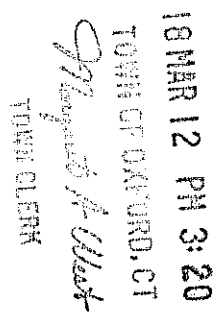 18 MAR 12 PM 3:20
TOWN OF OXFORD, CT
Margaret A West
TOWN CLERK